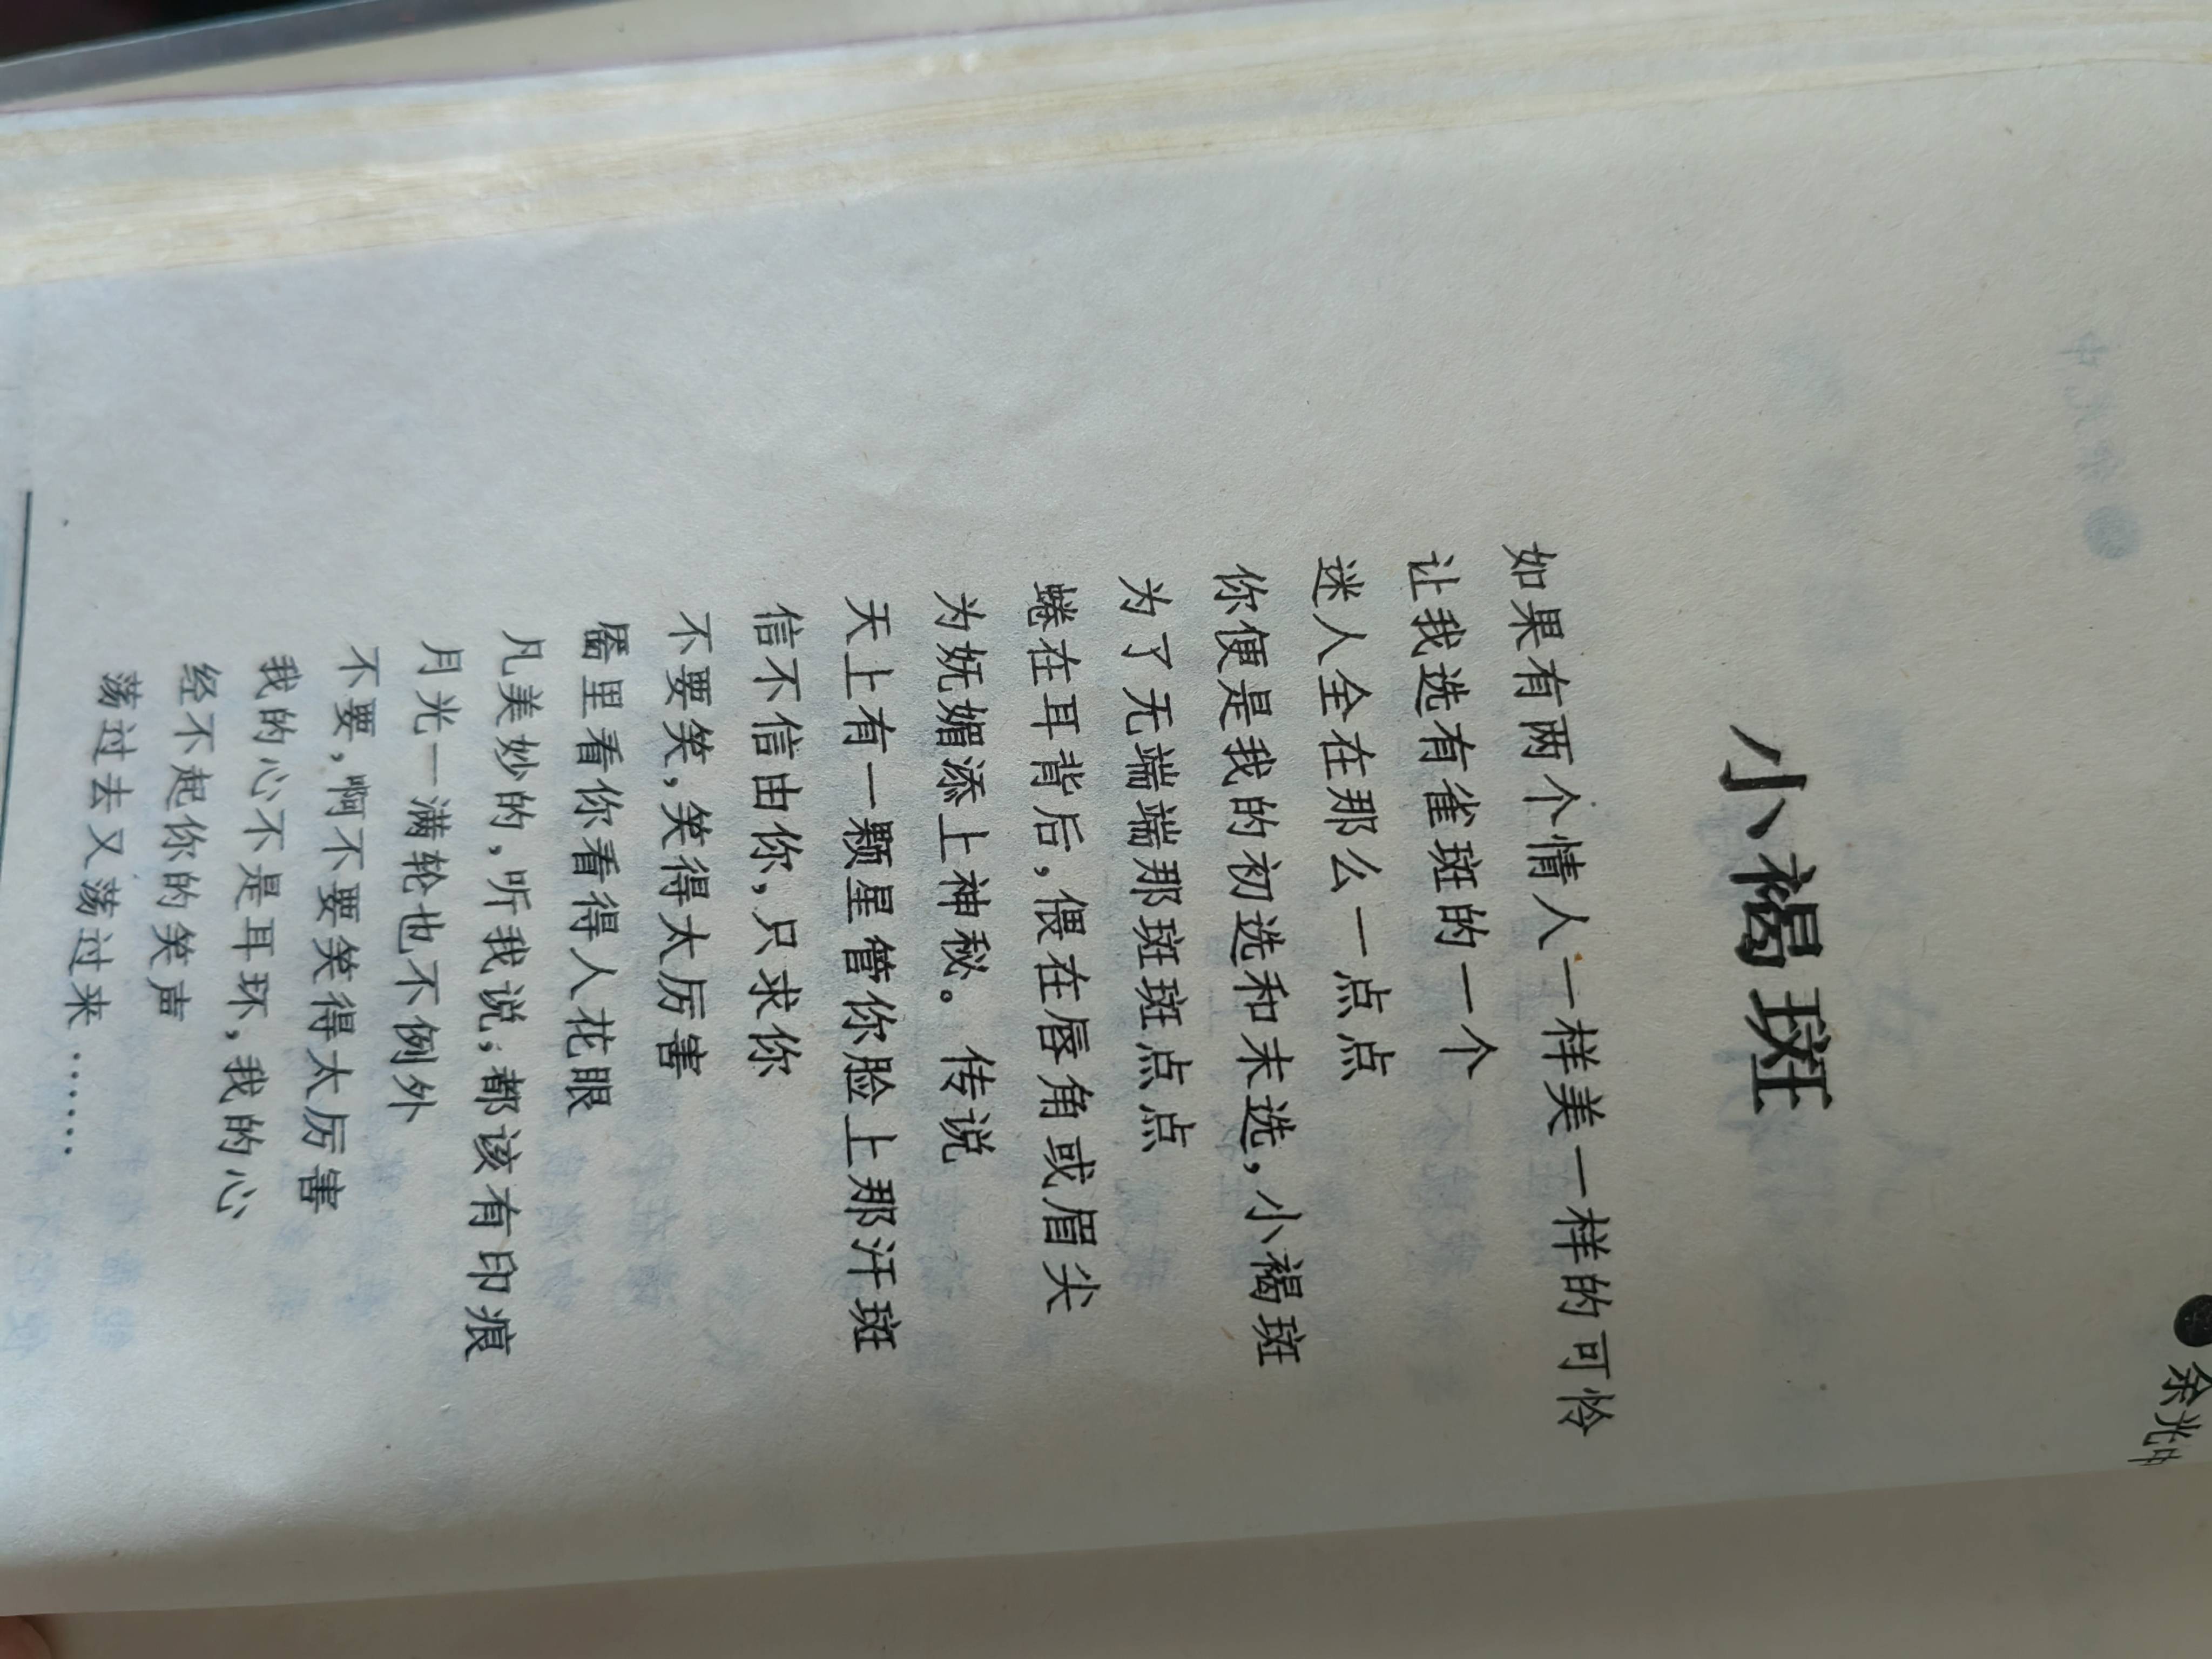 余光中
小褐斑
如果有两个情人一样美一样的可怜
让我选有雀斑的一个
迷人全在那么一点点
你便是我的初选和末选，小褐斑
为了无端端那斑斑点点
蜷在耳背后，偎在唇角或眉尖
为妩媚添上神秘。传说
天上有一颗星管你脸上那汗斑
信不信由你，只求你
不要笑，笑得太厉害
靥里看你看得人花眼
凡美妙的，听我说，都该有印痕
月光一满轮也不例外
不要，啊不要笑得太厉害
我的心不是耳环，我的心
经不起你的笑声
荡过去又荡过来……